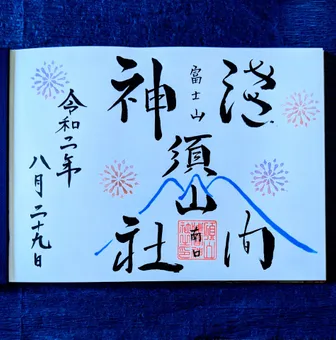 浅間
富士山
須山
南口
神社
令和二年
八月二十九日